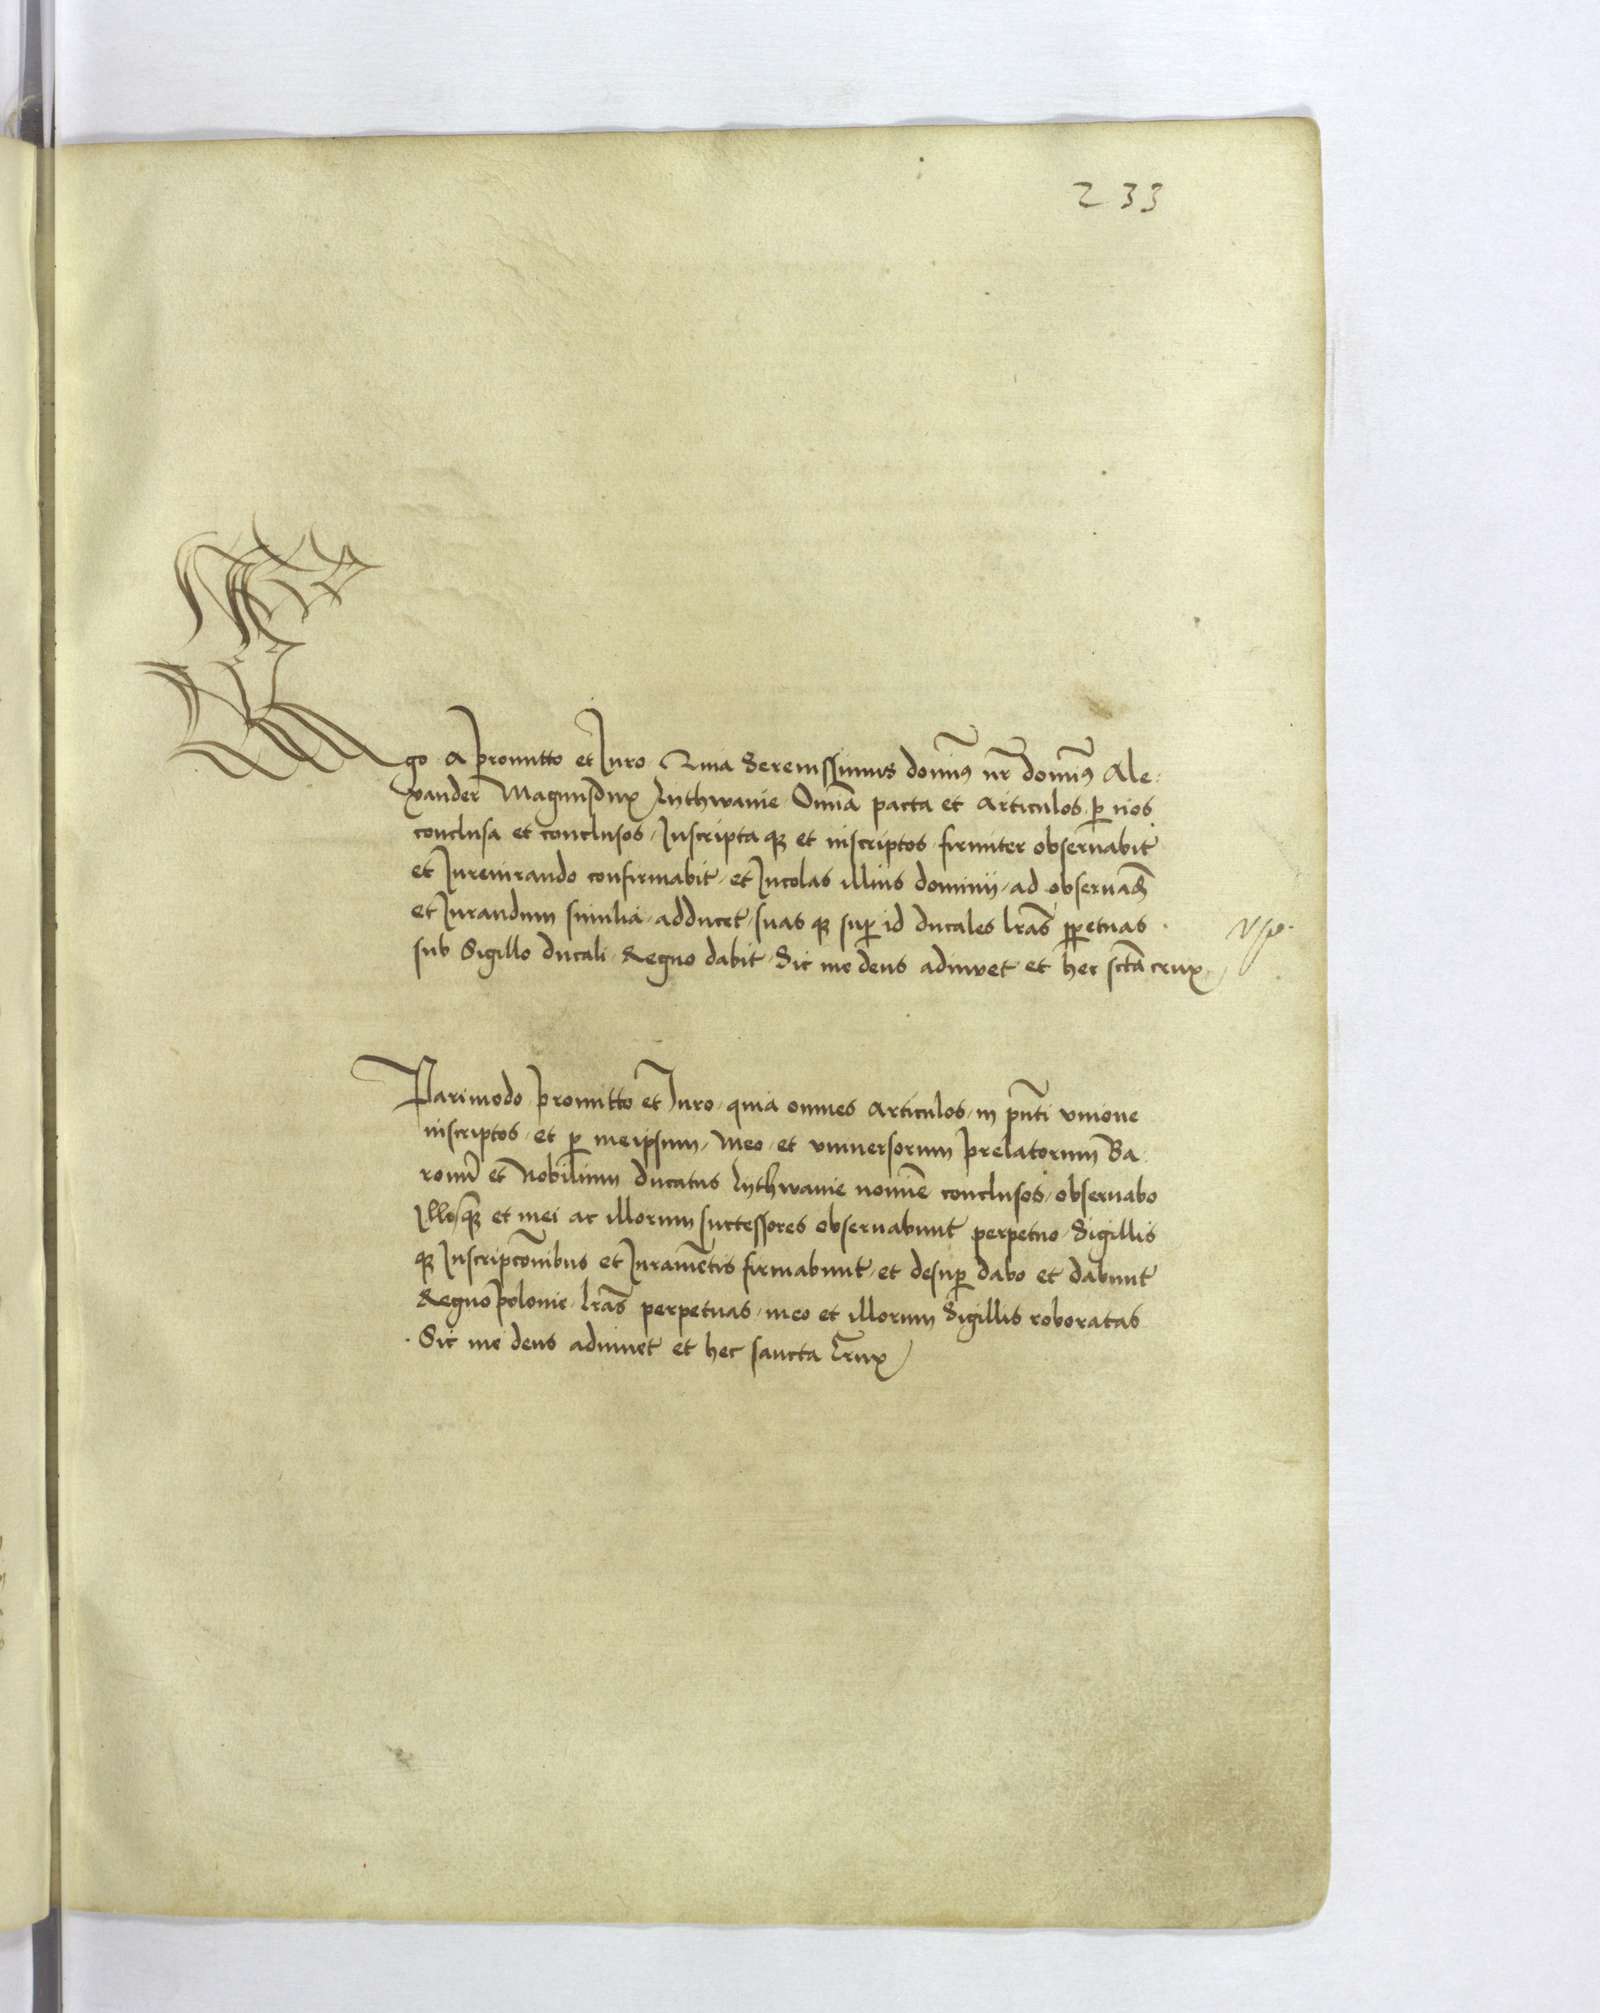 233
Ego A promitto et Iuro Quia Serenissimus domin9 nr̄ domin9 Ale:
xander Magnusdux Lythwanie Omīa pacta et Articulos p̱ nos
conclusa et conclusos, Inscripta qʒ et inscriptos firmiter observabit
et Iureiurando confirmabit, et Incolas illius dominii, ad observan̄
et Iurandum similia, adducet, suas qʒ sup̱ id ducales lr̄as p̱petuas
sub Sigillo ducali Regno dabit, Sic me deus adiuvet et hec sctā crux
Parimodo promitto et Iuro, quia omnes Articulos, in pn̄ti vnione
inscriptos, et p̱ meipsum, Meo, et vniuersorum prelatorum Ba
ronū et Nobilium ducatus Lythwanie nomīe conclusos, observabo
Illosqʒ et mei ac illorum successores observabunt perpetuo Sigillis
qʒ Inscripcōnibus et Iuramētis firmabunt, et desup̱ dabo et dabunt
Regno polonie, lr̄as perpetuas, meo et illorum Sigillis roboratas
. Sic me deus adiuvet et hec sancta Crux